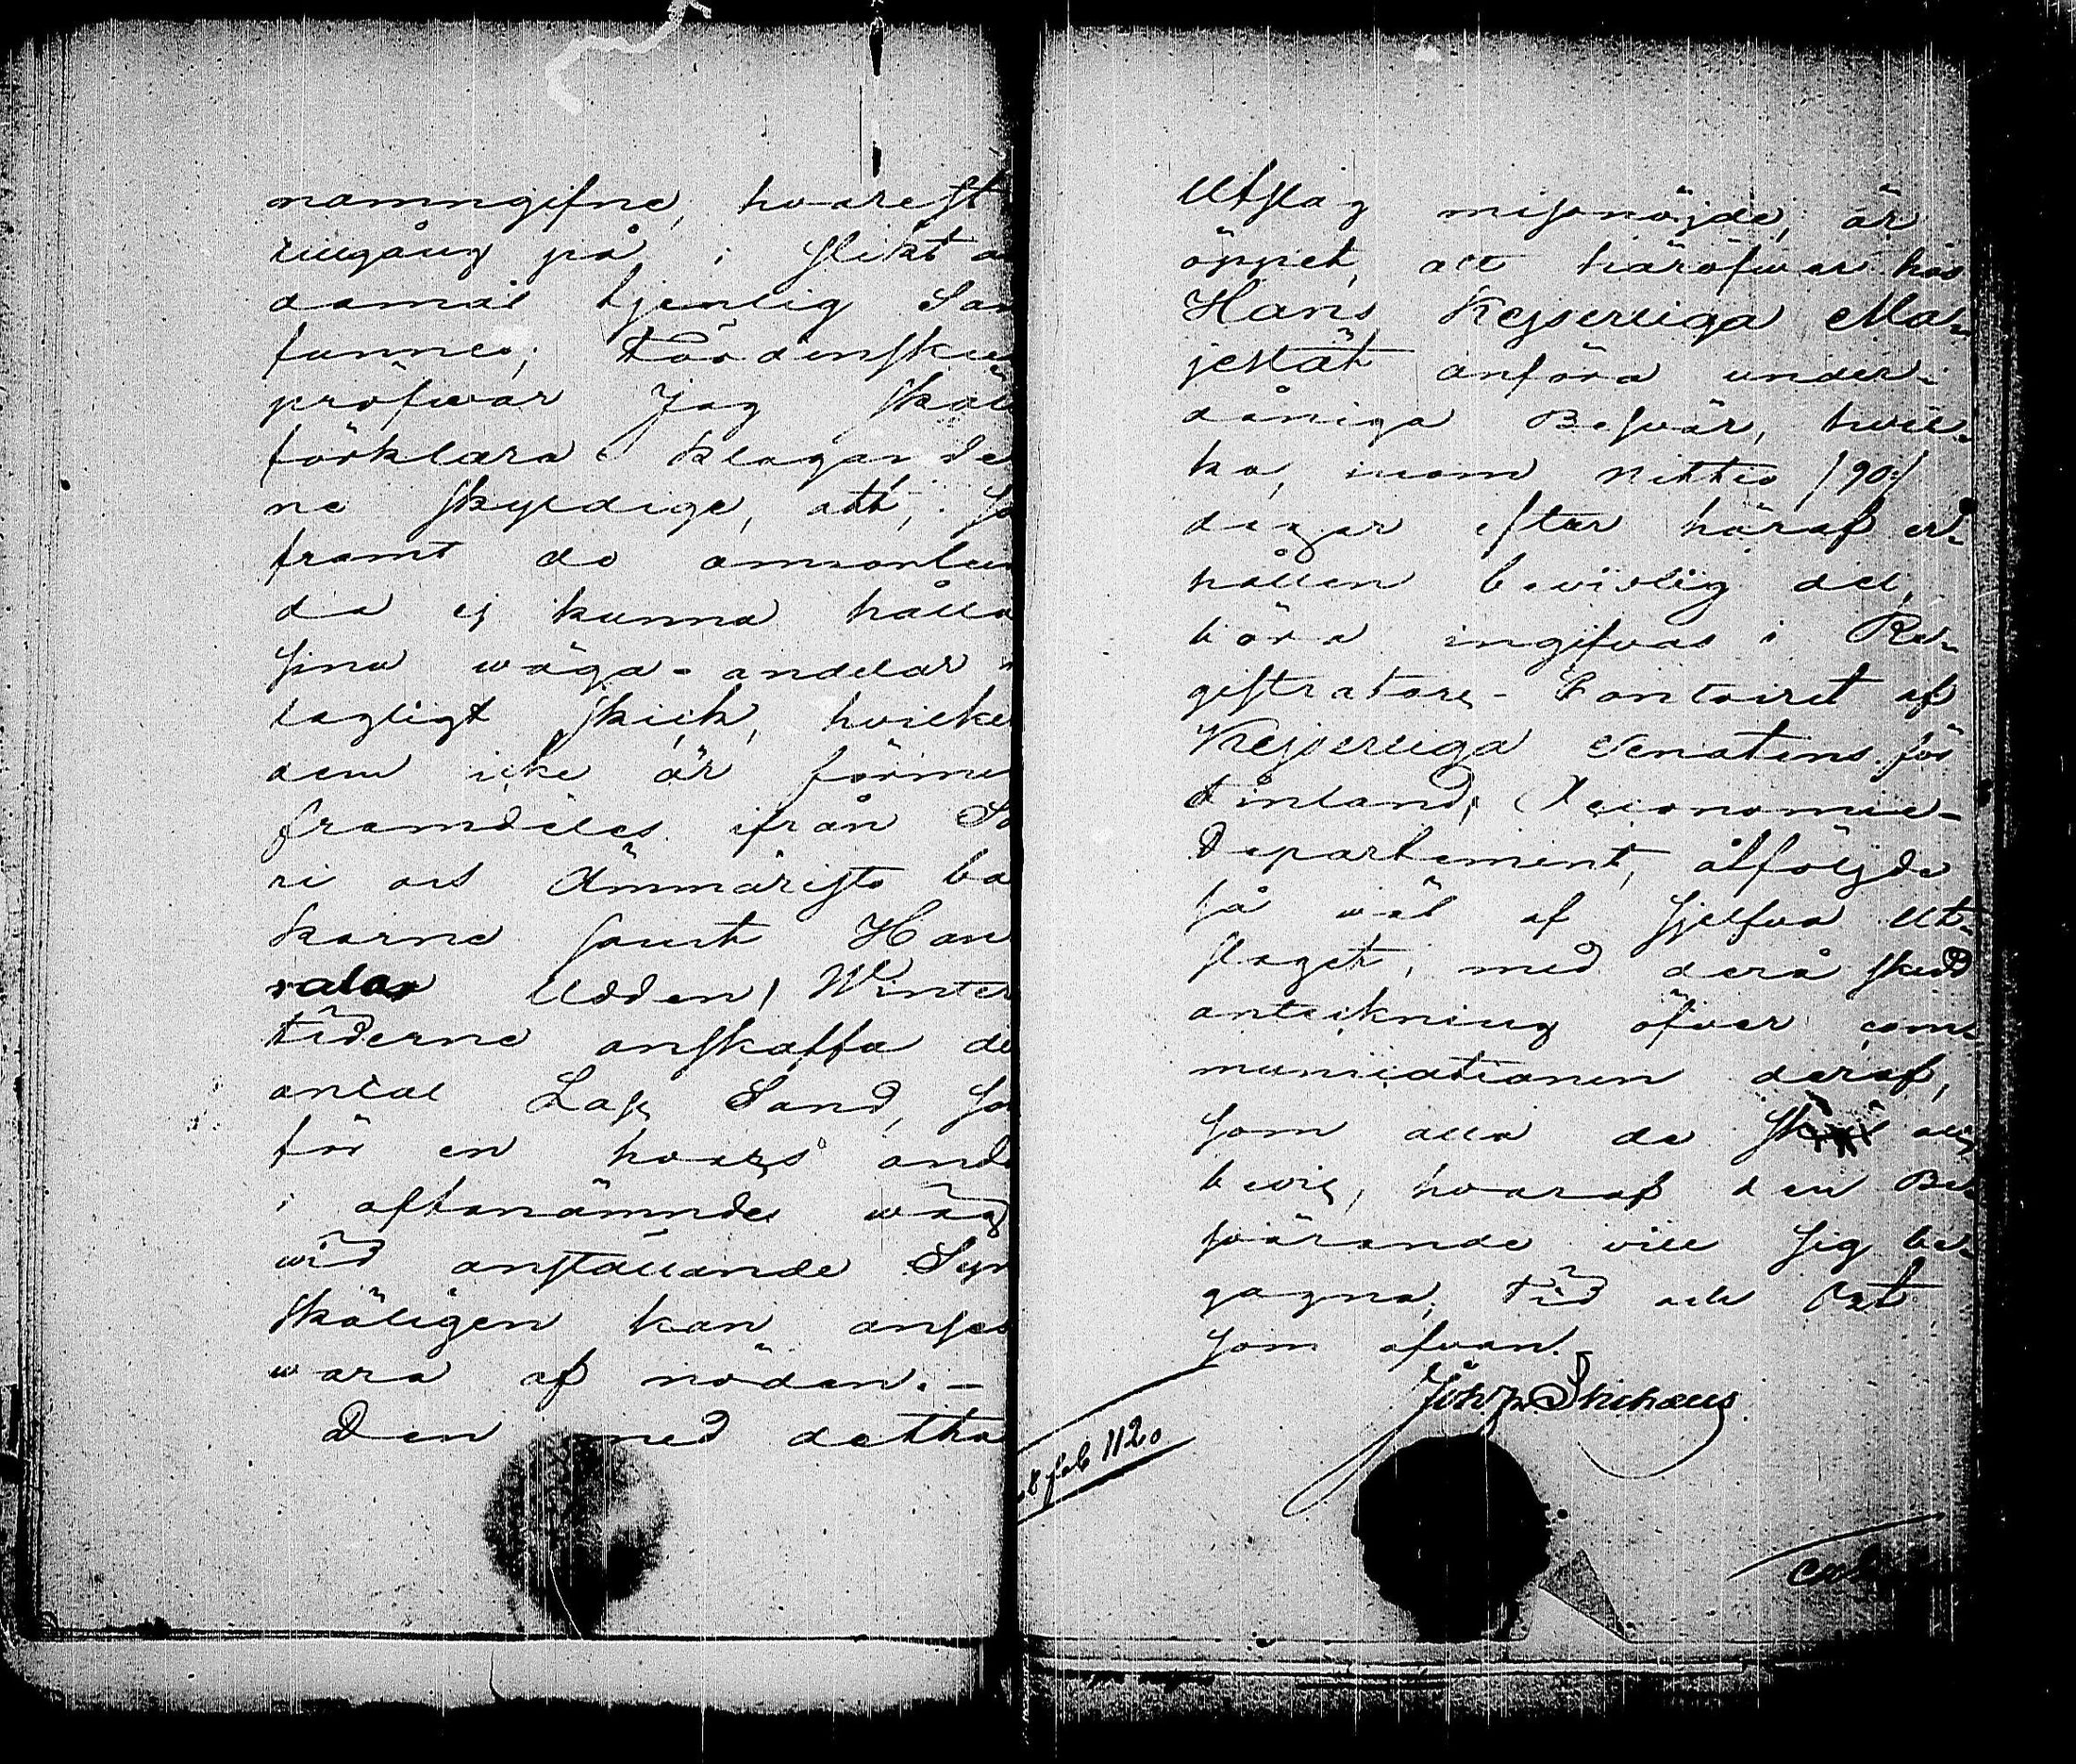 namngifne, hvarest
tillgång på, i slikt
damål tjenlig San
funnes; Fördenskul
pröfwar Jag skäl
förklara Klagande
ne skyldige, att, så
framt de annorlun
da ej kunna hålla
sina wäga-andelar i
lagligt skick, hvilket
dem icke är förme
framdeles ifrån Sa
ri och Ämmäristo ba
karne samt Han
ralar Udden, Winter
tiderne anskaffa de
antal Lass Sand, so
för en hvars ande
i oftanämnde wäg
wid anställande Syn
skäligen kan anses
wara af nöden. -
Den med detta
Utslag missnöjde, är
öppet, att häröfwer hos
Hans Kejserliga Ma-
jestät anföra under-
dåniga Besvär, hvil-
ka, inom Nittio /90:/
dagar efter häraf er-
hållen bevislig del,
böra ingifvas i Re-
gistrators-Contoiret af
Kejserliga Senatens för
Finland, Oeconomie-
Departement, åtföljde
så wäl af sjelfva Ut-
slaget, med derå skedd
anteckning öfver com-
municationen deraf,
som alla de skäl och
bevis, hvaraf den Be-
svärande vill sig be-
gagna; Tid och Ort
som ofvan.
8 feb 1120